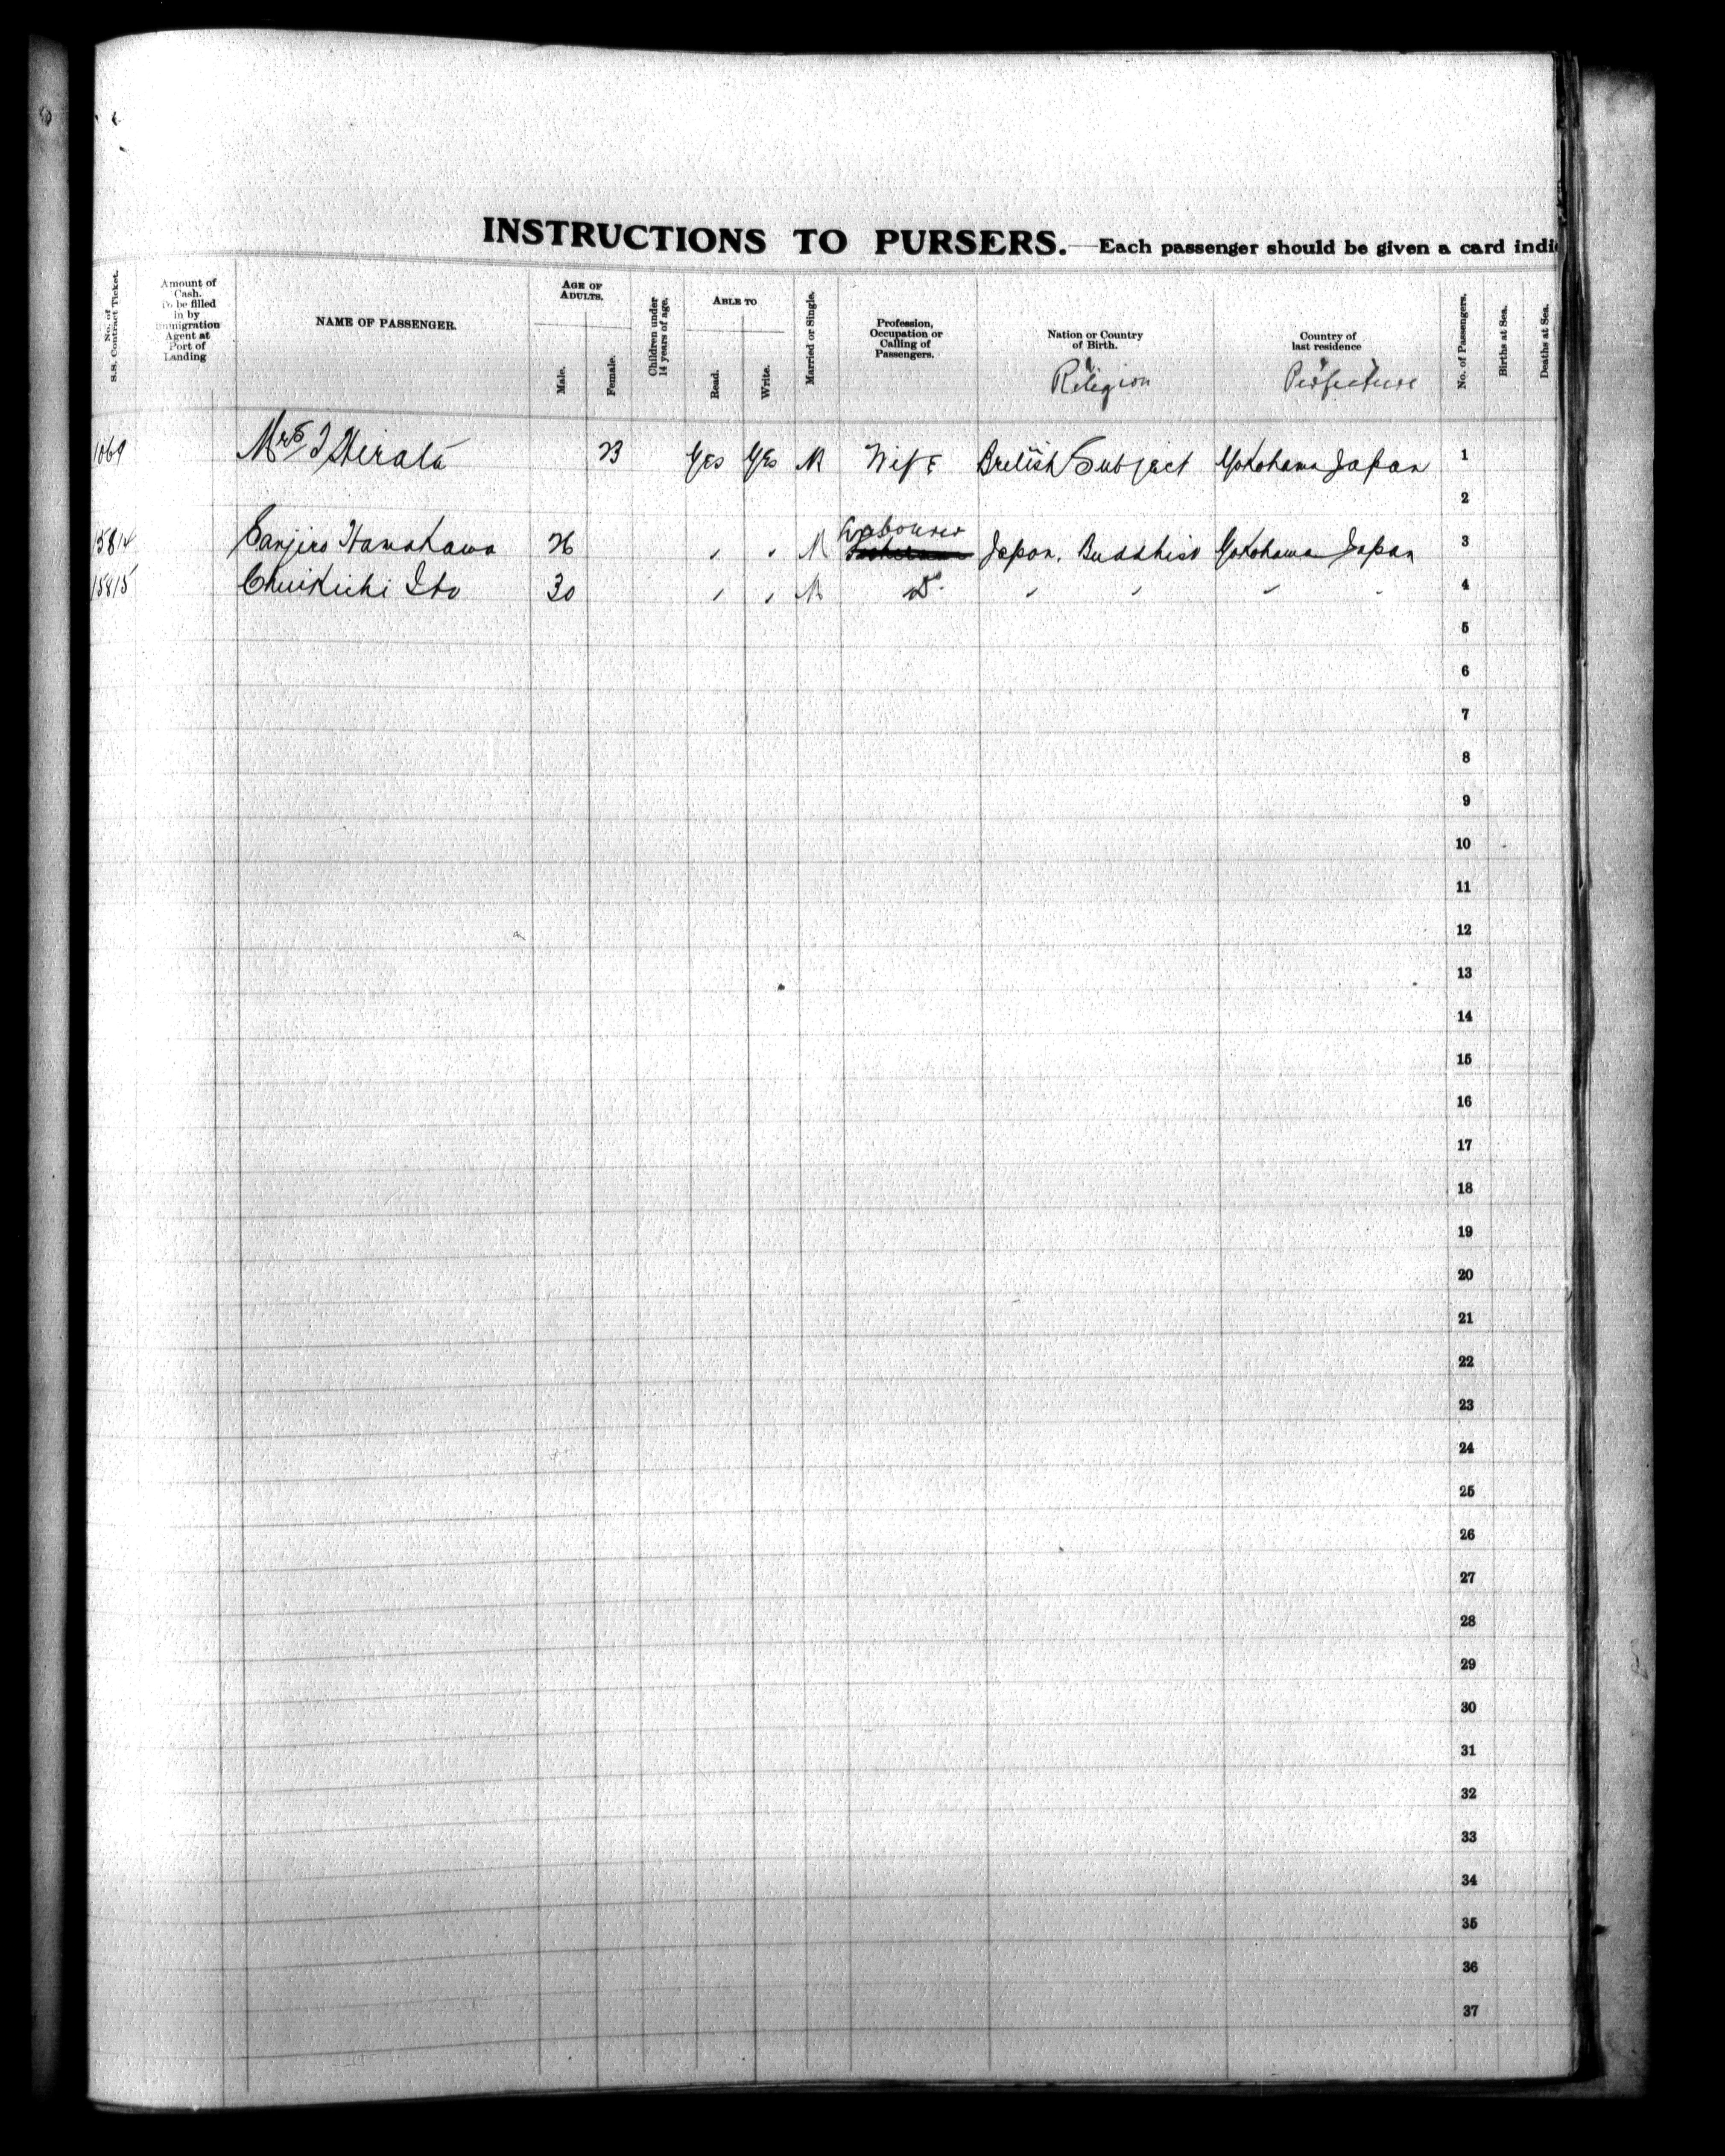 INSTRUCTIONS TO PURSERS.—Each passenger should be given a card indi
No. of S.S. Contract Ticket.
Amount of Cash. To be filled in by Immigration Agent at Port of Landing
NAME OF PASSENGER.
AGE OF ADULTS.
Male.
Female.
Children under 14 years of age.
ABLE TO
Read.
Write.
Married or Single.
Profession, Occupation or Calling of Passengers.
Nation or Country of Birth.
& Religion
Country of last residence
& Perfecture
No. of Passengers.
Births at Sea.
Deaths at Sea.
1069 Mrs I Hirata 23 Yes Yes M Wife British Subject Yokohama Japan 1
2
Labourer
15814 Sanjiro Hamakawa 26 " " M Japan. Buddhist Yokohama Japan 3
15815 Chuikichi Ito 30 " " M Do " " " " 4
5
6
7
8
9
10
11
12
13
14
15
16
17
18
19
20
21
22
23
24
25
26
27
28
29
30
31
32
33
34
35
36
37